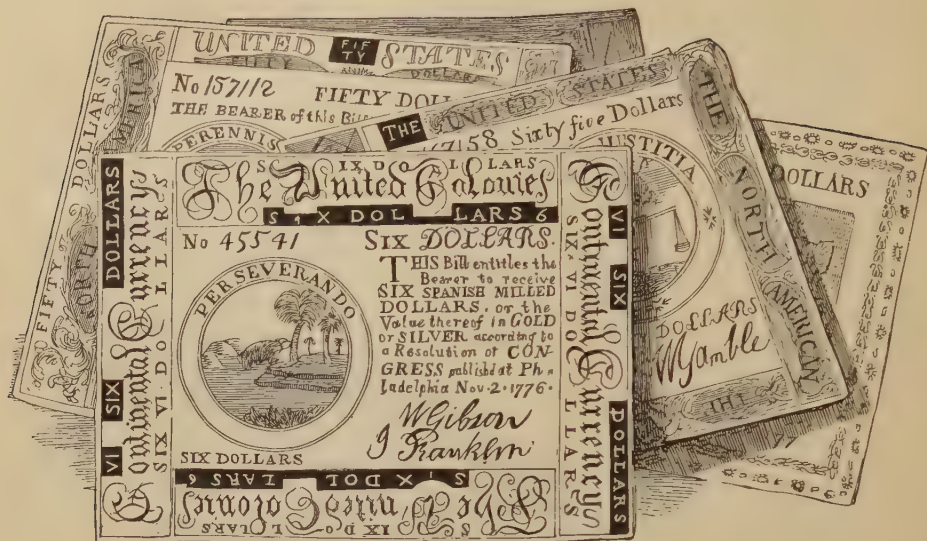 UNITED FIFTY STATES
FIFTY DOLLARS
FIFTY DOLLARS
NORTH AMERICA
No 157112 FIFTY DOLL
THE BEARER of this Bill
PERENNIS
THE UNITED STATES
THE NORTH AMERICAN
7158 Sixty five Dollars
JUSTITIA
DOLLARS
WGamble
DOLLARS
SIX DOLLARS
The United Colonies
SIX DOLLARS 6
No 45541 SIX DOLLARS.
THIS Bill entitles the
Bearer to receive
SIX SPANISH MILLED
DOLLARS, or the
Value thereof in GOLD
or SILVER according to
a Resolution of CON-
GRESS published at Ph-
ladelphia Nov. 2. 1776.
PERSEVERANDO
WGibson
J Franklin
SIX DOLLARS
VI SIX DOLLARS
Continental Currency
SIX VI DOLLARS
VI SIX DOLLARS
Continental Currencys
SIX, VI DOLLARS
SIX DOLLARS 6
The United Colonies
SIX DOLLARS